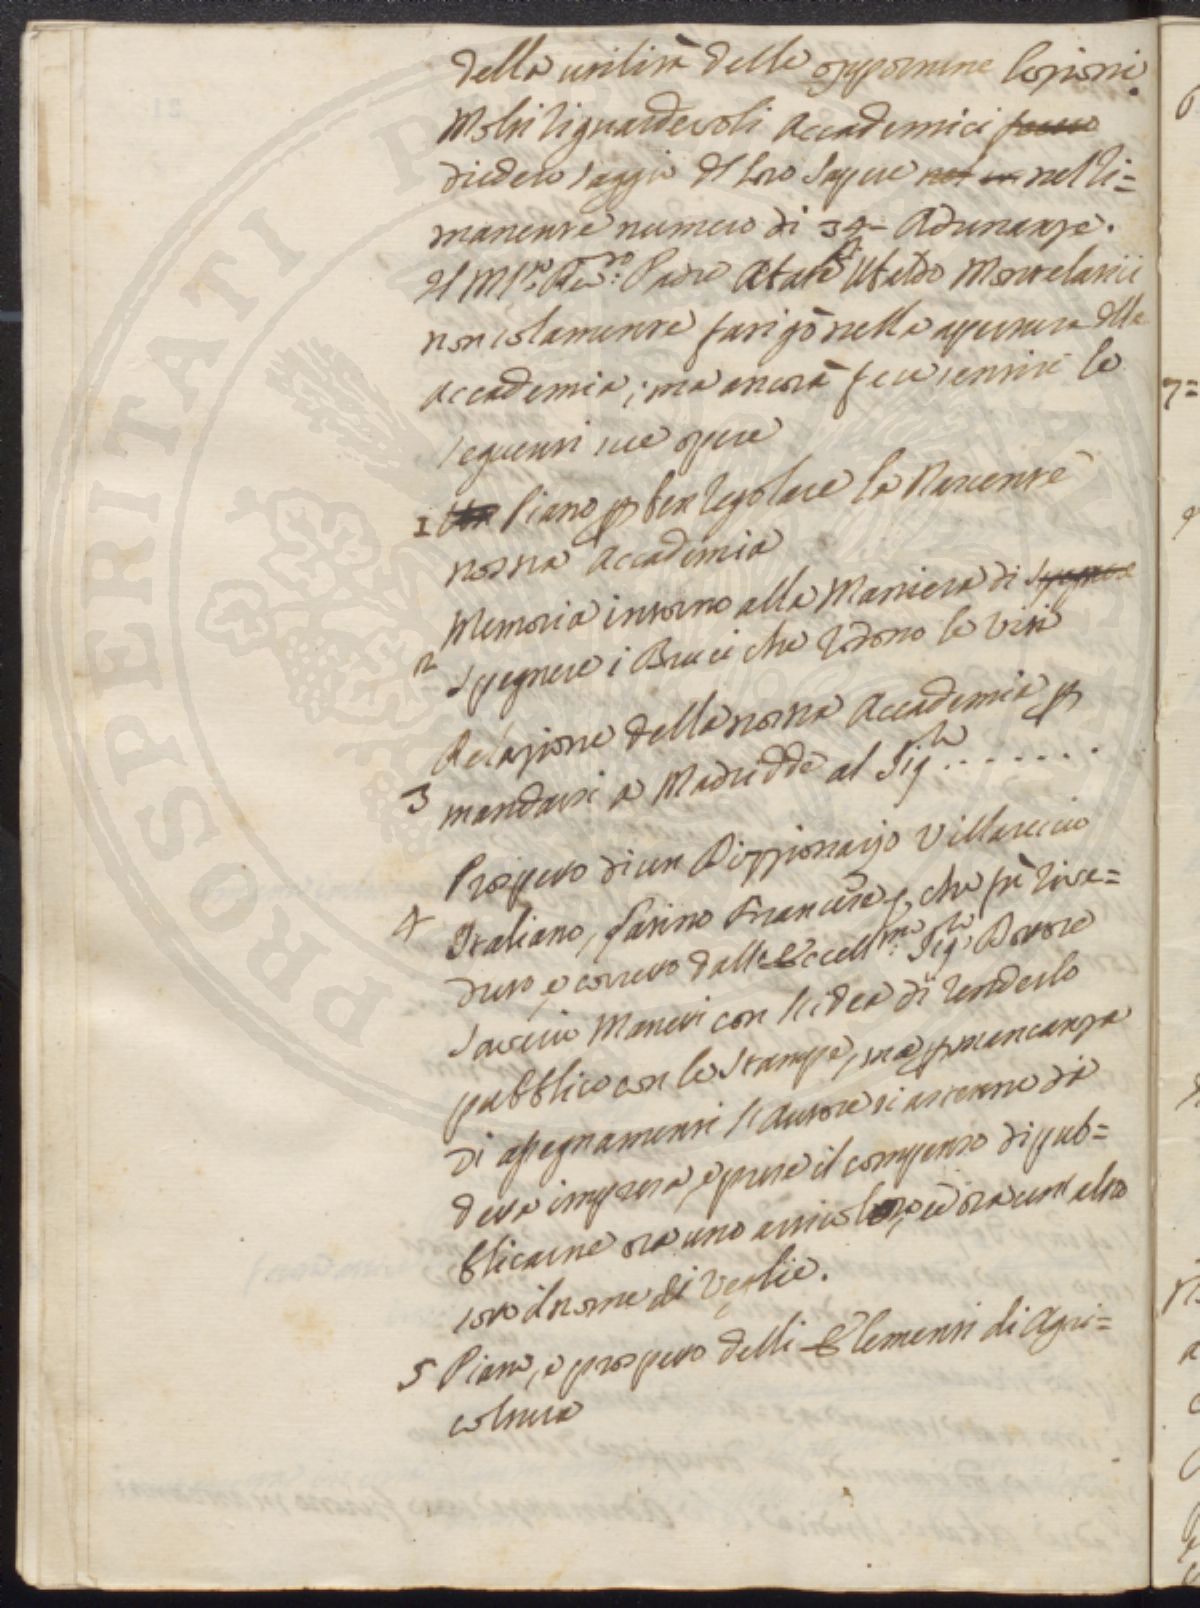 della utilità delle opportune lezioni.
Molti riguardevoli Accademici
diedero saggio del loro sapere nel ri=
manente numero di 39 Adunanze.
Il M.to Rev.do Padre Abate Ubaldo Montelatici
non solamente faticò nella apertura della
Accademia; ma ancora fece sentire le
seguenti sue opere
1 Un Piano per ben regolare la Nascente
nostra Accademia
Memoria intorno alla Maniera di spegnere
2 spegnere i Bruci che rodono le viti
Relazione della nostra Accademia per
3 mandarsi a Madridde al Sig.re .......
Prospetto di un Dizzionario Villareccio
4 Italiano, Latino Francese, che fù rive=
duto, e corretto dall'Eccell.mo Sig.re Dottore
Saverio Manetti con l'idea di renderlo
pubblico con le Stampe, ma per mancanza
di assegnamenti l'Autore si astenne da
detta impresa, e prese il compenso di pub=
blicarne ora uno articolo, e ora un altro
sotto il nome di Veglie.
5 Piano, e prospetto delli Elementi di Agri=
coltura
PROSPERITATI